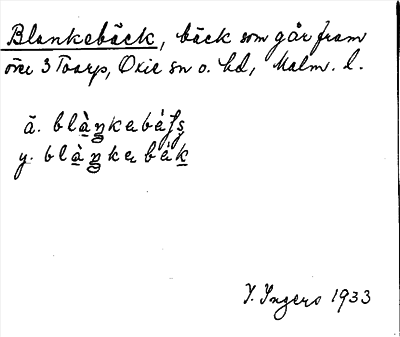 Blankebäck, bäck som går fram
över 3 Toarp, Oxie sn o. hd, Malm. l.
ä. blàŋkabɛ́ʃs
y. blàŋkabɛ́k
I. Ingers 1933